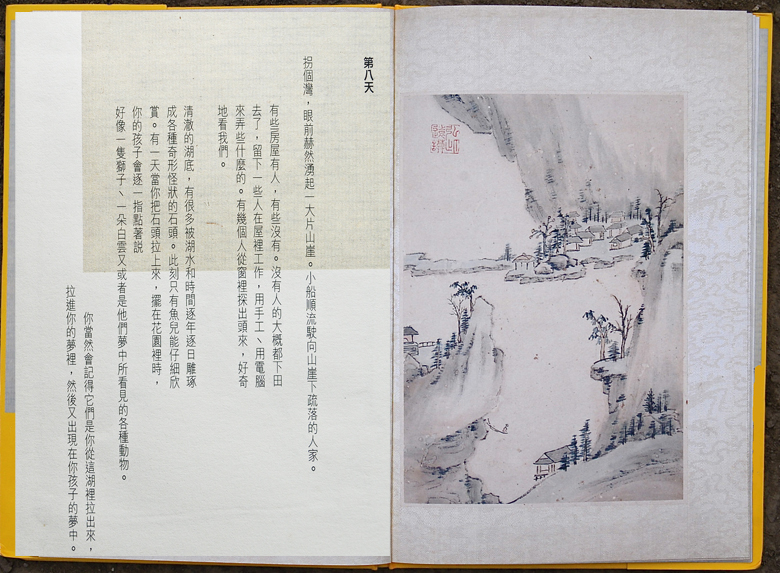 第八天
拐個灣，眼前赫然湧起一大片山崖。小船順流駛向山崖下疏落的人家。
有些房屋有人，有些沒有。沒有人的大概都下田
去了，留下一些人在屋裡工作，用手工、用電腦
來弄些什麼的。有幾個人從窗裡探出頭來，好奇
地看我們。
清澈的湖底，有很多被湖水和時間逐年逐日雕琢
成各種奇形怪狀的石頭。此刻只有魚兒能仔細欣
賞。有一天當你把石頭拉上來，擺在花園裡時，
你的孩子會逐一指點著說
好像一隻獅子、一朵白雲又或者是他們夢中所看見的各種動物。
你當然會記得它們是你從這湖裡拉出來，
拉進你的夢裡，然後又出現在你孩子的夢中。